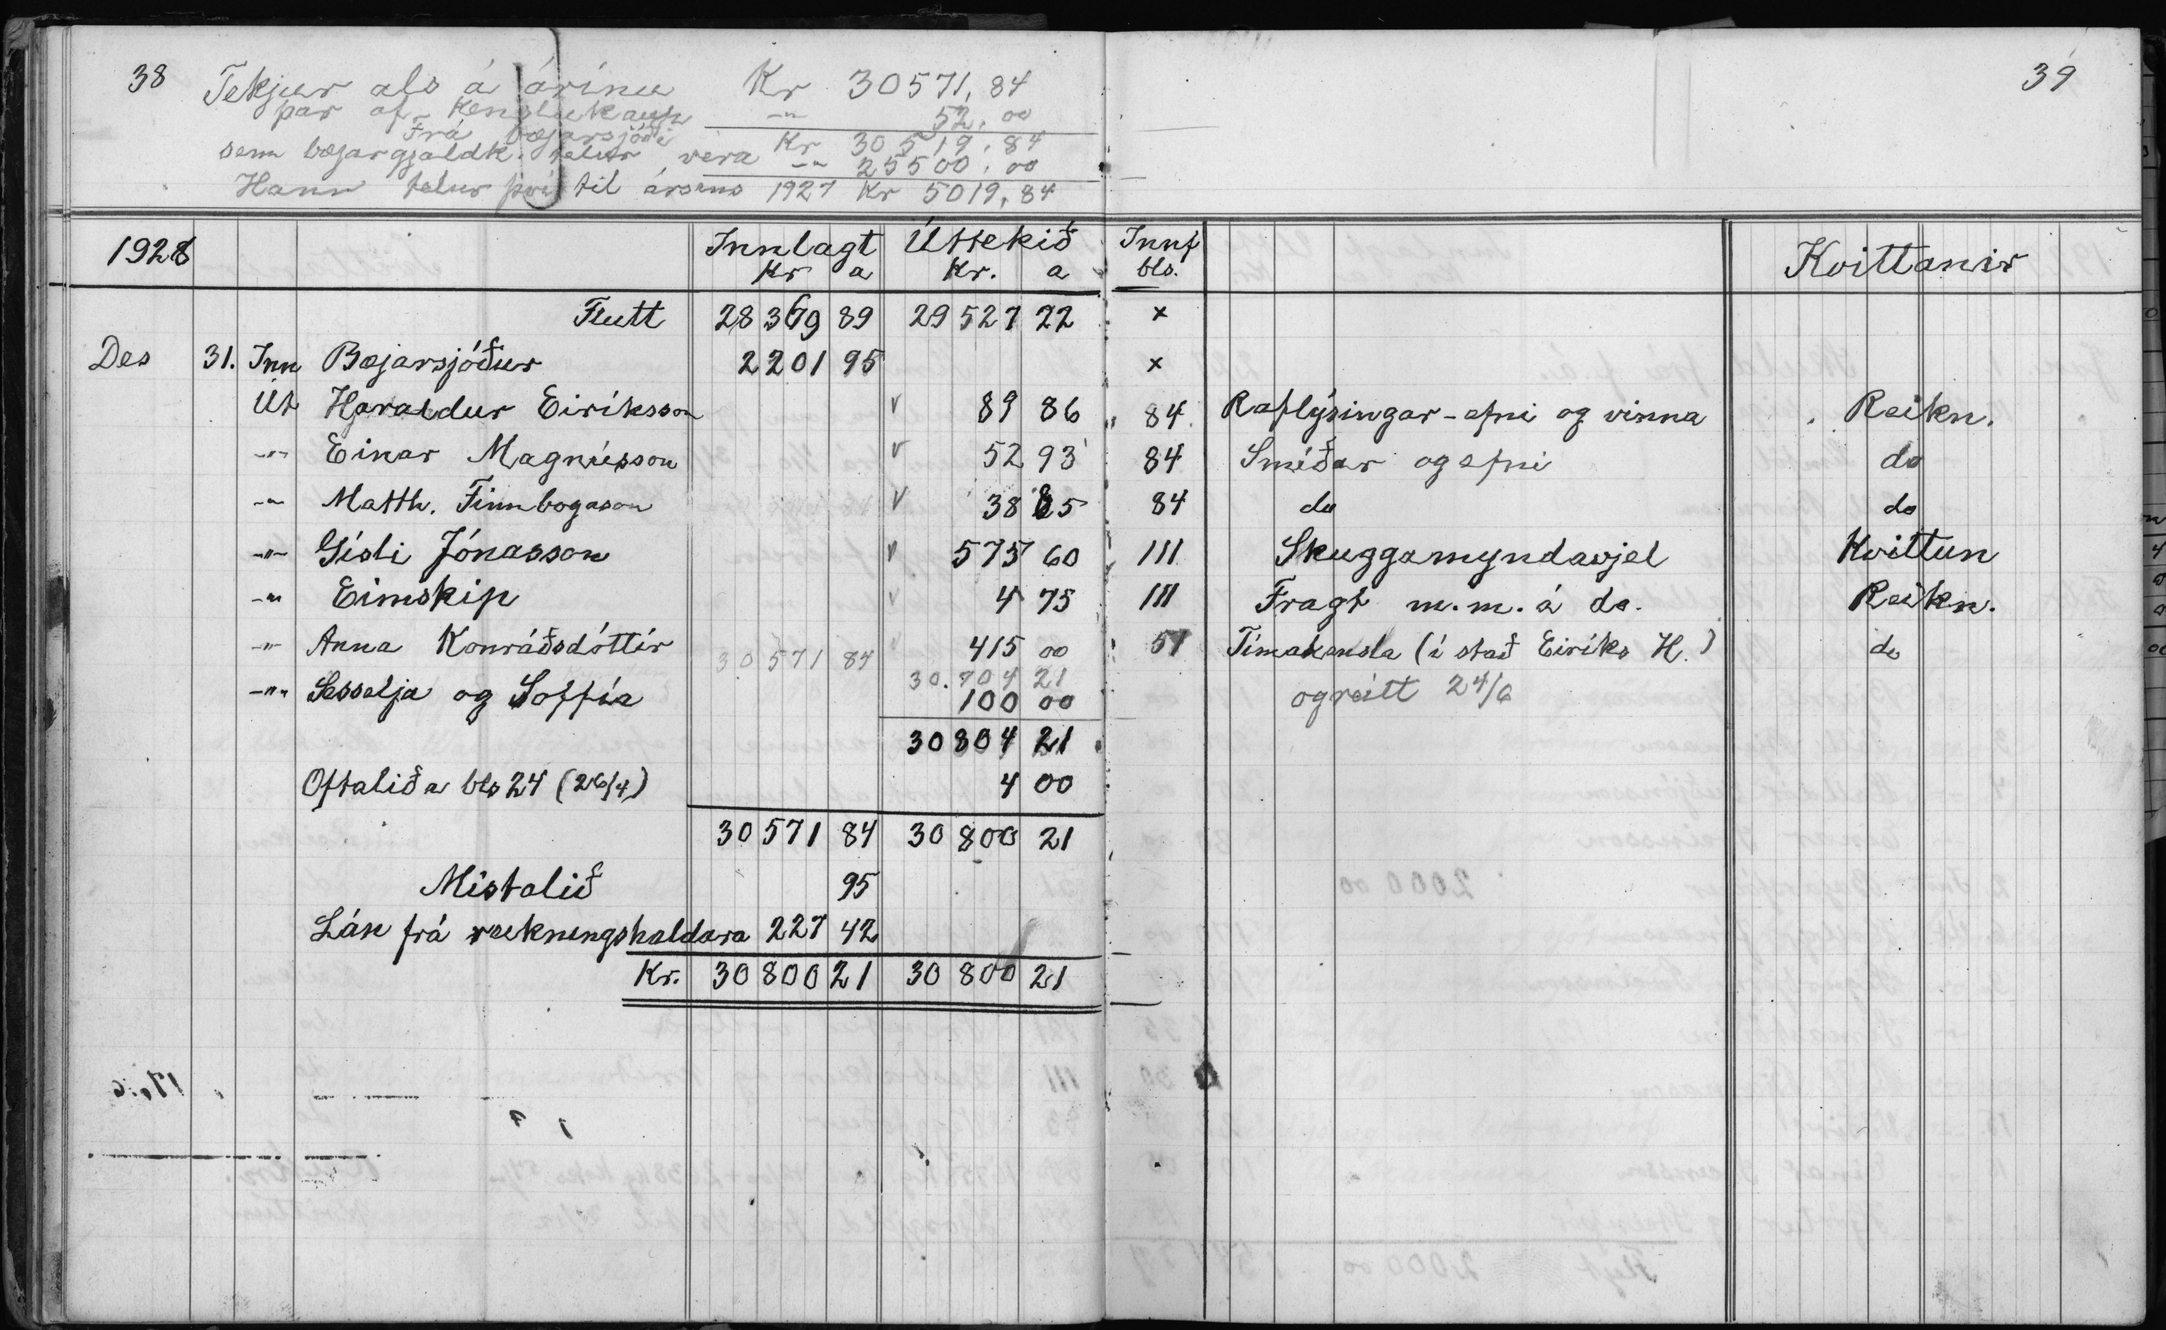 38 Tekjur als á árinu Kr 30571,84
þar af kenslukaup -"- 52,00
Frá bæjarsjóði Kr 30519,84
sem bæjargjaldk. telur vera -"- 25500,00
Hann telur því til ársins 1927 Kr 5019,84
39
1928 Innlagt Úttekið Innf Kvittanir
Kr a Kr. a bls.
Flutt 28369 89 29527 22 x
Des 31. Inn Bæjarsjóður 2201 95 x
Út Haraldur Eiríksson v 89 86 84 Raflýsingar-efni og vinna Reikn.
-"- Einar Magnússon v 52 93 84 Smíðar og efni do
-"- Matth. Finnbogason v 38 85 84 do do
-"- Gísli Jónasson v 575 60 111 Skuggamyndavjel Kvittun
-"- Eimskip v 4 75 111 Fragt m.m. á do. Reikn.
-"- Anna Konráðsdóttir v 415 00 51 Tímakensla (í stað Eiríks H.) do
30571 84 30.704 21
-"- Sesselja og Soffía 100 00 ogreitt 24/6
30804 21
Oftalið á bls 24 (26/4) 4 00
30571 84 30800 21
Mistalið 95
Lán frá reikningshaldara 227 42
Kr. 30800 21 30800 21